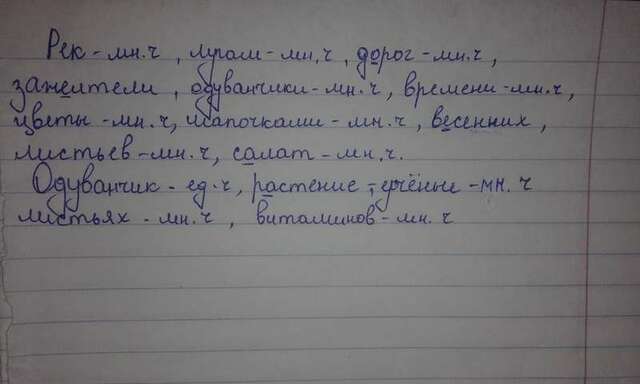 Рек - мн.ч, лугам - мн.ч, дорог - мн.ч,
зажелтели, одуванчики - мн.ч, времени - мн.ч,
цветы - мн.ч, шапочками - мн.ч, весенних,
листьев - мн.ч, салат - мн.ч.
Одуванчик - ед.ч, растение, учёные - мн.ч
листьях - мн.ч, витаминов - мн.ч